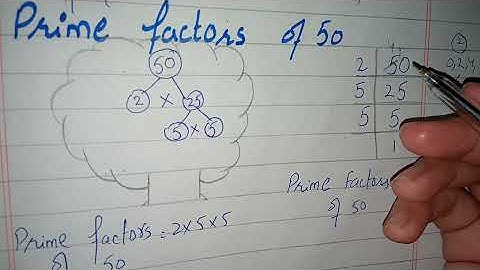 Prime factors of 50
50
2 x 25
5 x 5
2 50
5 25
5 5
1
2
0,2,4,
Prime factors
of 50
Prime factors = 2x5x5
of 50